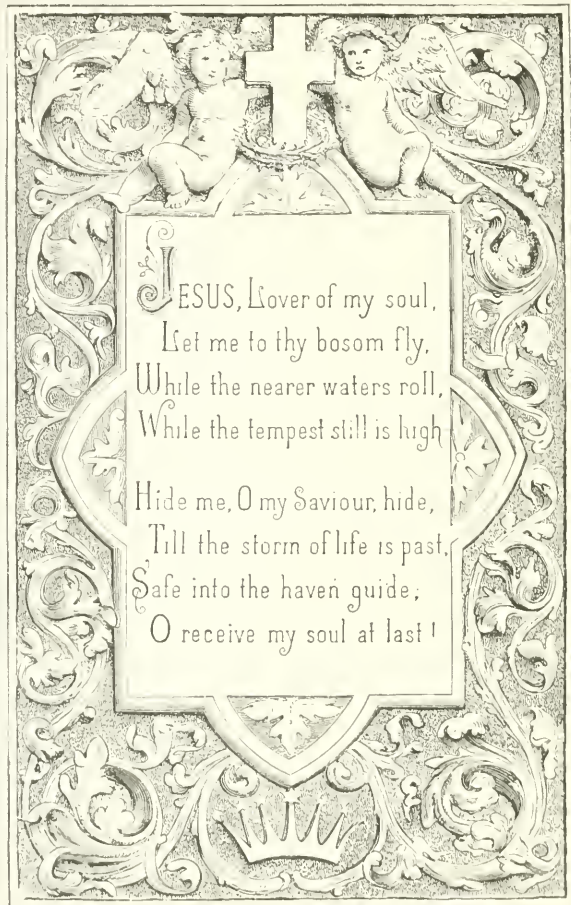 JESUS, Lover of my soul,
Let me to thy bosom fly,
While the nearer waters roll,
While the tempest still is high
Hide me, O my Saviour, hide,
Till the storm of life is past,
Safe into the haven guide;
O receive my soul at last!